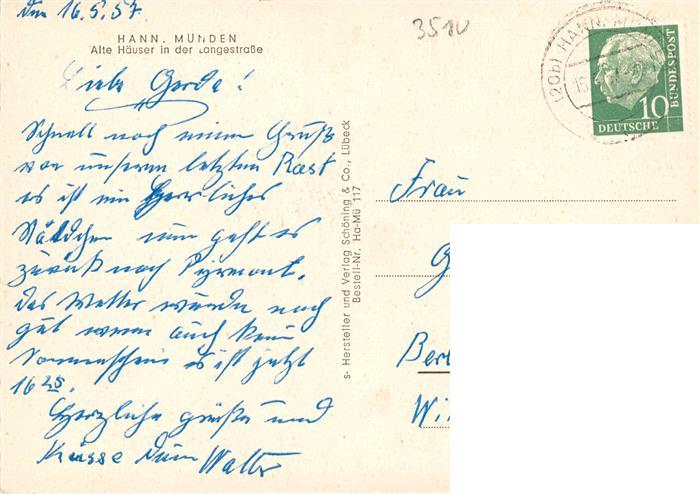 den 16.5.57.
3510
HANN. MÜNDEN
Alte Häuser in der Langestraße
Liebe Gerda!
Schnell noch einen Gruß
von unserer letzten Rast
es ist ein herrliches
Städtchen nun geht es
zurück nach Pyrmont.
Das Wetter wurde noch
gut wenn auch kein
Sonnenschein es ist jetzt
16 25.
Herzliche Grüße und
Küsse Dein Walter
s- Hersteller und Verlag Schöning & Co., Lübeck
Bestell-Nr. Ha-Mü 117
(20b) HANN.
10
DEUTSCHE
BUNDESPOST
Frau
G
Ber
Wi